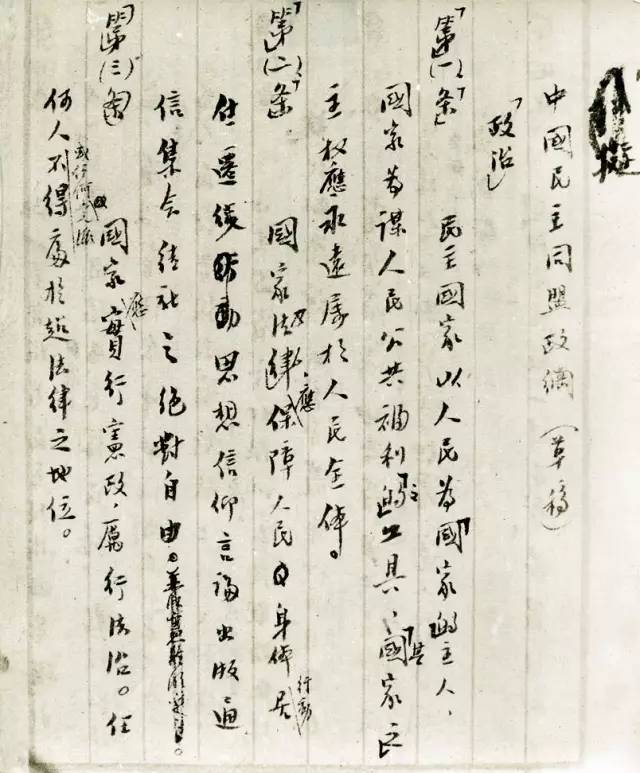 擬
中國民主同盟政綱（草稿）
「政治」
「第(一)条」 民主國家以人民為國家的主人，
國家為謀人民公共福利之工具，其國家之
主权應永遠属於人民全体。
「第(二)条」 國家法律應保障人民身体行動居
住遷徙思想信仰言論出版通
信集会結社之絕對自由。
「第(三)条」 國家應實行憲政，厲行法治。任
何人或任何党派不得處於超法律之地位。